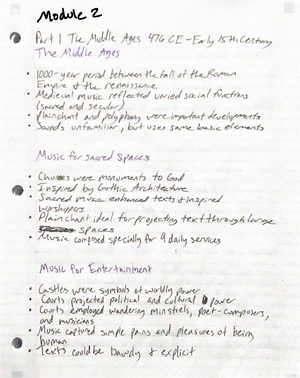 Module 2
Part 1 The Middle Ages 476 CE - Early 15th Century
The Middle Ages
• 1000-year period between the fall of the Roman
Empire & the rennaissance
• Medieval music reflected varied social functions
(sacred and secular)
• Plainchant and polyphony were important developments
• Sounds unfamiliar, but uses same basic elements
Music for Sacred Spaces
• Churches were monuments to God
• Inspired by Gothic Architecture
• Sacred music enhanced texts & inspired
worshippers
• Plainchant ideal for projecting text through large
spaces
• Music composed specially for 9 daily services
Music for Entertainment
• Castles were symbols of worldly power
• Courts projected political and cultural power
• Courts employed wandering minstrels, poet-composers,
and musicians
• Music captured simple pains and pleasures of being
human
• Texts could be bawdy & explicit